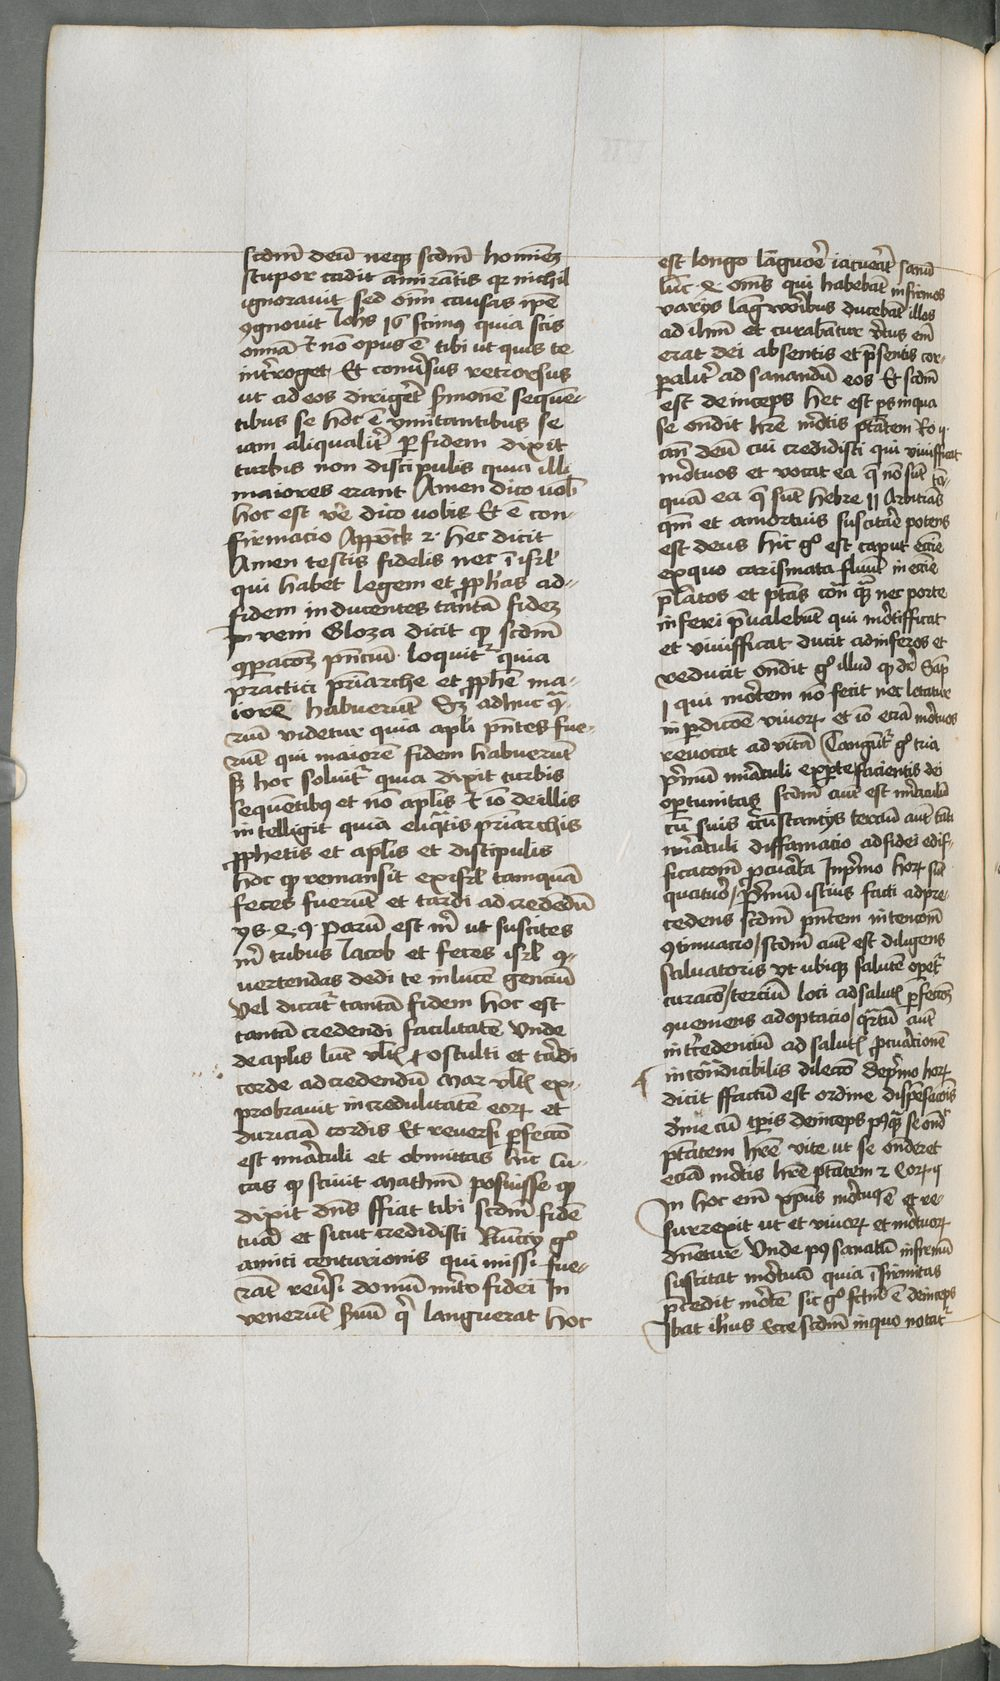 scdm̄ deū neqȝ scdm̄ homīeȝ
stupor cadit am̄irātis qꝛ nichil
ignorauit sed oīm causas ip̄e
ꝯgnouit Joh̄s 16 scimꝰ quia scis
om̄ia ⁊ nō opus ē tibi ut quis te
int̄roget Et conūsus retrorsus
ut ad eos dirigeret̄ sermonē sequē-
tibus se hoc ē ymitantibus se
iam aliqualit̄ ꝑ fidem dixit
turbis non discipulis quia illi
maiores erant Amen dico vob̄
hoc est vē dico vobis Et ē con-
firmacio Appōck 2 hec dicit
Amen testis fidelis nec ī isrl̄
qui habet legem et ꝓph̄as ad-
fidem inducentes tantā fideȝ
Inveni Gloza dicit qꝫ scdm̄
ꝯꝑacōȝ pn̄ciū loquit̄ quia
practici priarche et ꝓphē ma-
iorē habuerūt Sȝ adhuc q̄-
riū videtur quia apl̄i pn̄tes fue-
rūt qui maiorē fidem habuerūt
Sꝫ hoc soluit̄ quia dixit turbis
sequētibus et nō aplis ⁊ iō de illis
intelligit quia eliq̄tis priarchis
ꝓphetis et aplis et discipulis
hoc qꝫ remansit ex isrl̄ tamquā
feces fuerūt et tardi ad credēdū
ys 49 parū est m̄ ut suscites
m̄ tribus Jacob et feces isrl̄ ꝯ-
uertendas dedi te in lucē genciū
Vel dicat̄ tantā fidem hoc est
tantā credendi facilitatē Unde
de aplis luc̄ vlt̄ o stulti et tardi
corde ad credendū Mar vlt̄ ex-
probrauit incredulitatē eoꝝ et
duriciā cordis Et reuersi ꝑfeccō
est mirāculi et obmittas hic lu-
cas qꝫ sciuit Mathm̄ posuisse qꝫ
dixit dn̄s ffiat tibi scdm̄ fidē
tuā et sicut credidisti Nūccy gͦ
amici centurionis qui missi fue-
rāt reūsi domū mīto fidei In
venerūt ẜuū q̄ languerat hoc
est longo lāguōe iacuerāt sanū
luc̄ 4 om̄s qui habebāt infirmos
varys lāgwōribus ducebāt illos
ad ihm̄ et curabātur v̄tus em̄
erat dei absentis et p̄sentis cor-
ꝑalit̄ ad sanandū eos Et scdm̄
est deinceps hec est ps in qua
se ondit hr̄e mōtis ptātem Ro 4
an̄ deū cui credidisti qui viuifficat
mōtuos et vocat ea q̄ nō sūt tā-
quā ea q̄ sūt Hebre 11 Arbitras
qm̄ et a mortuis suscitare potens
est deus hic gͦ est caput eccīe
ex quo carismata fluūt in eccīe
p̄latos et ptās con̄ quā nec porte
inferi p̄ualebūt qui mōtifficat
et viuifficat ducit ad inferos et
reducit ondit gͦ illud qꝫ dr̄ Sap̄
1 qui mōtem nō fecit nec letatur
in ꝑdicōe viuoꝝ et iō eciā mōtuos
reuocat ad vitā Tangūt̄ gͦ tria
p̄mū mirāculi ex ꝑte facientis dei
oportunitas scdm̄ aut̄ est mirāculū
cū suis circūstantijs terciū aut̄ tāti
mirāculi diffamacio ad fidei edif-
ficacōm ꝓcurāta In p̄mo hoꝝ sūt
quatuor / P̄mū istius facti ad pre-
cedens scdm̄ pn̄tem intencōm
ꝯtinuacio / scdm̄ aut̄ est diligens
saluatoris ut ubiqȝ salutē operet̄
curacō / terciū loci ad salut̄ ꝑfecōȝ
ꝯueniens adoptacio / q̄rtū aut̄
int̄cedenciū ad salut̄ ꝓcuracionē
incondicibilis dileccō De p̄mo hoꝝ
dicit ffactū est ordine dispēsacōis
diuīe cū tp̄is deinceps pꝰquā se ond̄
ptātem hr̄e vite ut se onderet
eciā mōtis hr̄e ptātem 2 Coꝝ 4
In hoc em̄ xp̄us mōtuꝰ ē et re-
surrexit ut et viuoꝝ et mōtuoꝝ
dn̄etur Unde pꝰ sanatū infirmū
suscitat mōtuū quia īfirmitas
p̄cedit mōtē sic gͦ fctm̄ ē deinceps
Ibat ih̄us Ecce scdm̄ in quo notat̄